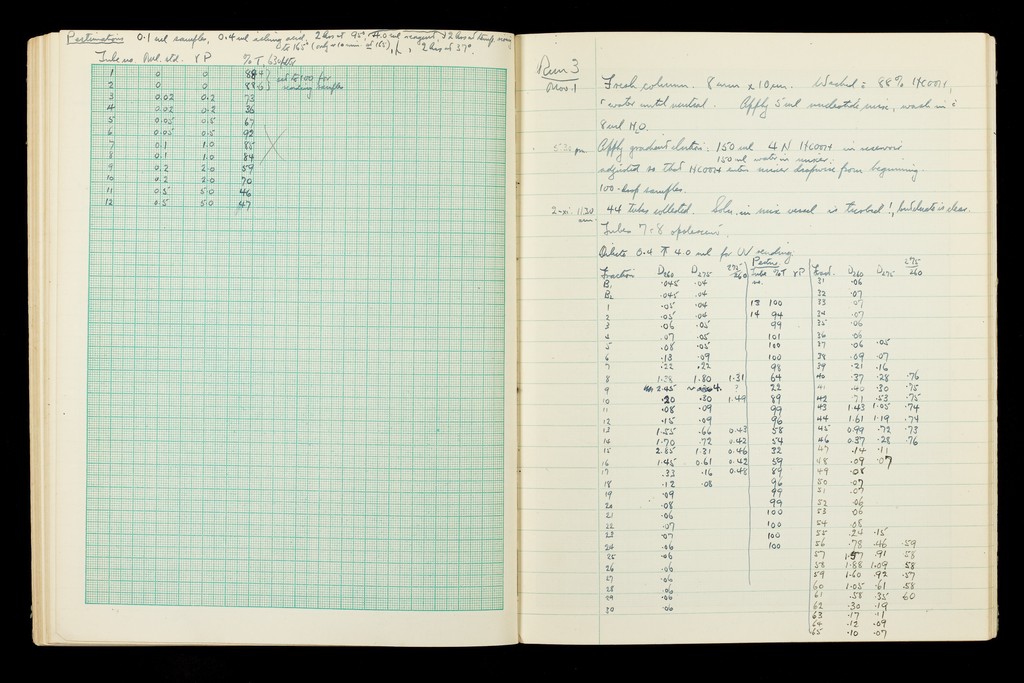 Estimations 0.1 ml samples, 0.4 ml acid, 2 hrs at 95°, 4.0 ml reagent, 2 hrs at
to 165° (only ~10 min at 165), 2 hrs at 37°.
Tube no. std. γP %T,
1 0 0 89.4 } set to 100 for
2 0 0 88.5 } reading samples
3 0.02 0.2 73
4 0.02 0.2 36
5 0.05 0.5 67
6 0.05 0.5 92
7 0.1 1.0 85
8 0.1 1.0 84
9 0.2 2.0 59
10 0.2 2.0 70
11 0.5 5.0 46
12 0.5 5.0 47
Run 3
Nov. 1 Fresh column. 8 mm x 10 cm. Washed 88% HCOOH,
water until neutral. Apply 5 ml nucleotide mix, wash in
8 ml H2O.
pm Apply gradient elution: 150 ml 4 N HCOOH in reservoir
150 ml water in mixer.
adjusted so that HCOOH enters mixer dropwise from beginning.
100-drop samples.
2-xi 11.30 am. 44 tubes collected. Soln. in mix vessel is !, but eluate is clear.
Tubes 7-8 opalescent.
Dilute 0.4 → 4.0 ml for UV reading.
Fraction D260 D275 275/260 Tube no. %T γP
B1 .045 .04
B2 .045 .04
1 .05 .04 13 100
2 .05 .04 14 94
3 .06 .05 99
4 .07 .05 101
5 .08 .05 100
6 .13 .09 100
7 .22 .22 98
8 1.38 1.80 1.31 64
9 2.45 ? 22
10 .20 .30 1.49 89
11 .08 .09 99
12 .15 .09 96
13 1.55 .66 0.43 58
14 1.70 .72 0.42 54
15 2.85 1.31 0.46 32
16 1.45 0.61 0.42 59
17 .33 .16 0.48 89
18 .12 .08 96
19 .09 99
20 .08 99
21 .06 100
22 .07 100
23 .07 100
24 .06 100
25 .06
26 .06
27 .06
28 .06
29 .06
30 .06
Fract. D260 D275 275/260
31 .06
32 .07
33 .07
34 .07
35 .06
36 .06
37 .06 .05
38 .09 .07
39 .21 .16
40 .37 .28 .76
41 .40 .30 .75
42 .71 .53 .75
43 1.43 1.05 .74
44 1.61 1.19 .74
45 0.99 .72 .73
46 0.37 .28 .76
47 .14 .11
48 .09 .07
49 .08
50 .07
51 .07
52 .06
53 .06
54 .08
55 .24 .15
56 .78 .46 .59
57 1.57 .91 .58
58 1.88 1.09 .58
59 1.60 .92 .57
60 1.05 .61 .58
61 .58 .35 .60
62 .30 .19
63 .17 .11
64 .12 .09
65 .10 .07